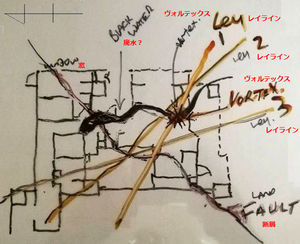 ヴォルテックス
Ley
レイライン
1
BLACK
WATER
廃水？
vortex.
2
レイライン
Ley
WINDOW
窓
ヴォルテックス
VORTEX.
3
Ley.
レイライン
LAND
FAULT
断層